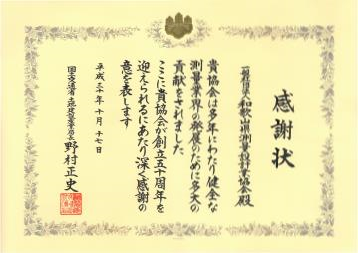 感謝状
一般社団法人和歌山県測量設計業協会殿
貴協会は多年にわたり健全な
測量業界の発展のために多大の
貢献をされました
ここに貴協会が創立五十周年を
迎えられるにあたり深く感謝の
意を表します
平成三十年十月十七日
国土交通省土地建設産業局長 野村正史